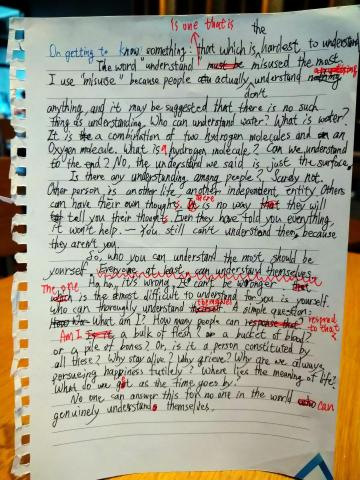 Is one that is the
On getting to know something: that which is hardest to understand
The word "understand" must be misused the most
I use "misuse" because people actually understand nothing
don't
anything, and it may be suggested that there is no such
thing as understanding. Who can understand water? What is water?
It is a combination of two hydrogen molecules and an
Oxygen molecule. What is a hydrogen molecule? Can we understand
to the end? No, the understand we said is just the surface.
Is there any understanding among people? Surely not.
Other person is another life, another independent entity. Others
can have their own thoughts. there is no way that they will
tell you their thoughts. Even they have told you everything,
it won't help. — You still can't understand them, because
they aren't you.
So, who you can understand the most should be
yourself. Everyone at least can understand themselves.
Ha ha, it's wrong. It can't be wronger that
The one which is the almost difficult to understand for you is yourself.
who can thoroughly understand A simple question:
What am I? How many people can response that? respond to that?
Am I Is it a bulk of flesh? a bucket of blood?
or a pile of bones? Or, is it a person constituted by
all these? Why stay alive? Why grieve? Why are we always
persueing happiness futilely? Where lies the meaning of life?
What do we get as the time goes by?
No one can answer this for no one in the world who can
genuinely understands themselves.